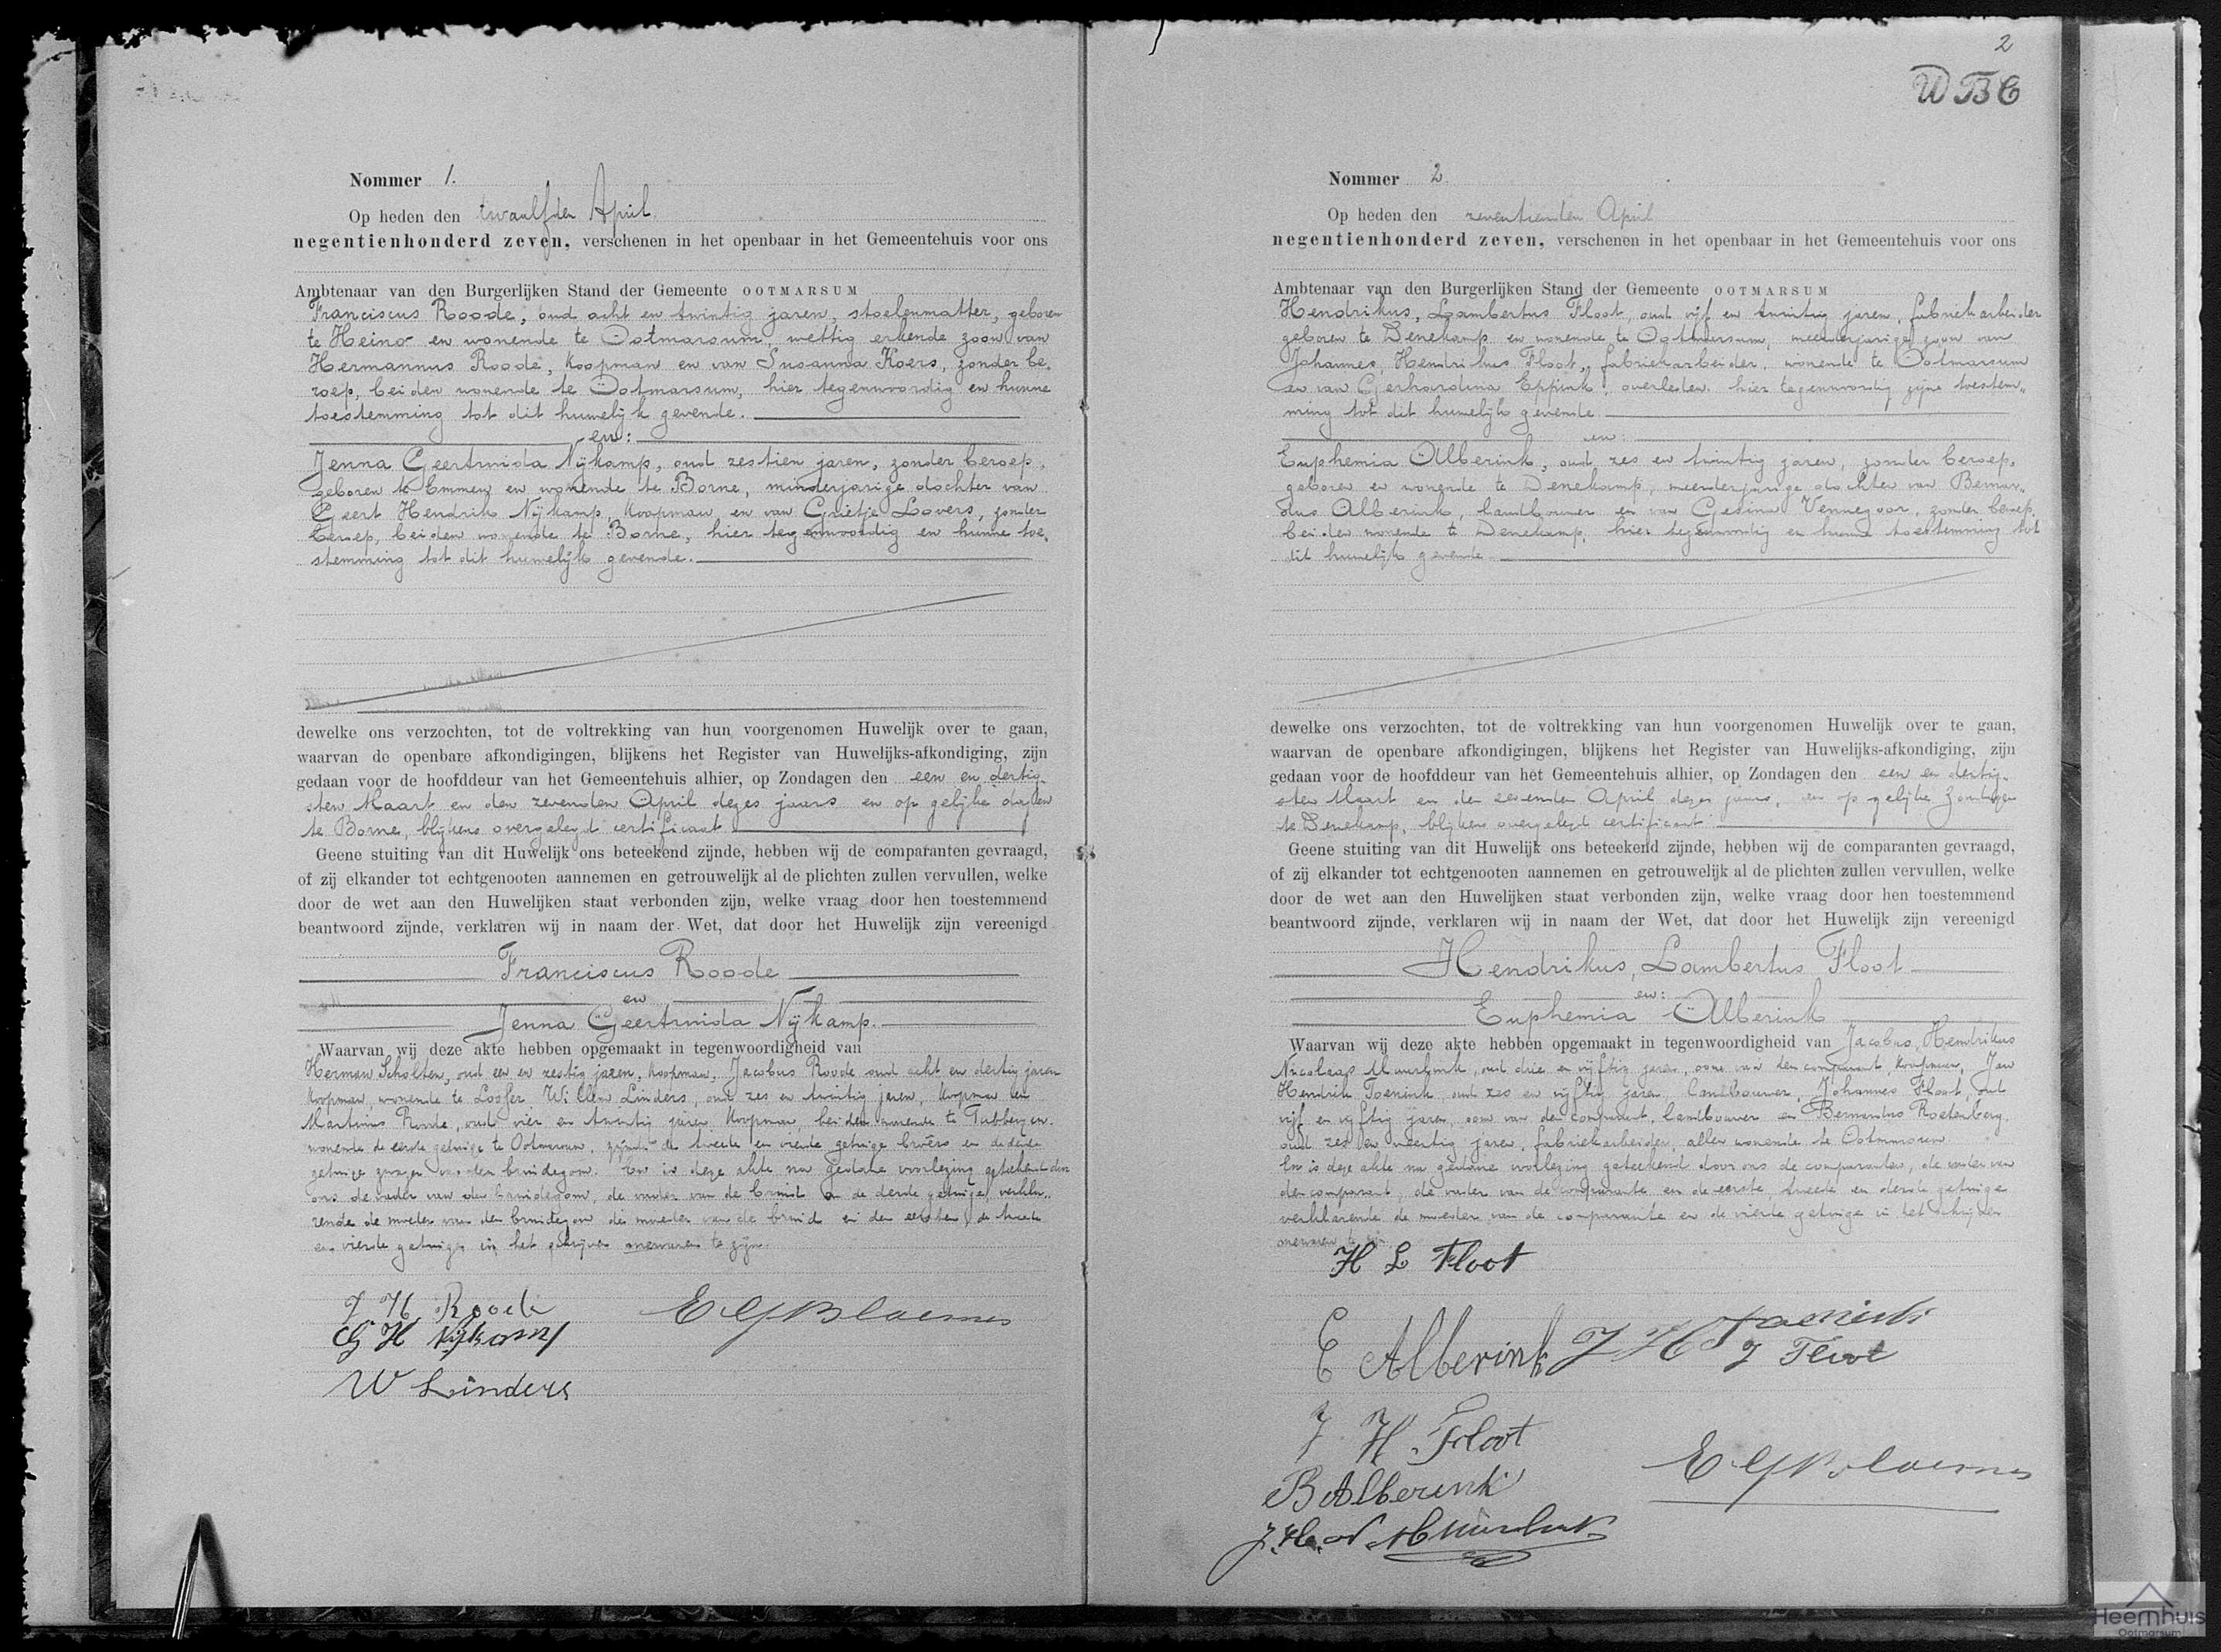 Nommer 1.
Op heden den twaalfden April
negentienhonderd zeven, verschenen in het openbaar in het Gemeentehuis voor ons
Ambtenaar van den Burgerlijken Stand der Gemeente OOTMARSUM
Franciscus Roode, oud acht en twintig jaren, stoelenmatter, geboren
te Heino en wonende te Ootmarsum, wettig erkende zoon van
Hermannus Roode, koopman en van Susanna Koers, zonder be-
roep, beiden wonende te Ootmarsum, hier tegenwoordig en hunne
toestemming tot dit huwelijk gevende.
en:
Jenna Geertruida Nijkamp, oud zestien jaren, zonder beroep,
geboren te Emmen en wonende te Borne, minderjarige dochter van
Geert Hendrik Nijkamp, koopman, en van Grietje Lovers, zonder
beroep, beiden wonende te Borne, hier tegenwoordig en hunne toe-
stemming tot dit huwelijk gevende.
dewelke ons verzochten, tot de voltrekking van hun voorgenomen Huwelijk over te gaan,
waarvan de openbare afkondigingen, blijkens het Register van Huwelijks-afkondiging, zijn
gedaan voor de hoofddeur van het Gemeentehuis alhier, op Zondagen den een en dertig-
sten Maart en den zevenden April dezes jaars en op gelijke dagen
te Borne, blijkens overgelegd certificaat
Geene stuiting van dit Huwelijk ons beteekend zijnde, hebben wij de comparanten gevraagd,
of zij elkander tot echtgenooten aannemen en getrouwelijk al de plichten zullen vervullen, welke
door de wet aan den Huwelijken staat verbonden zijn, welke vraag door hen toestemmend
beantwoord zijnde, verklaren wij in naam der Wet, dat door het Huwelijk zijn vereenigd
Franciscus Roode
en
Jenna Geertruida Nijkamp.
Waarvan wij deze akte hebben opgemaakt in tegenwoordigheid van
Herman Scholten, oud een en zestig jaren, koopman, Jacobus Roode oud acht en dertig jaren
koopman, wonende te Losser Willem Linders, oud zes en twintig jaren, koopman en
Martinus Roode, oud vier en twintig jaren koopman, beiden wonende te Tubbergen.
wonende de eerste getuige te Ootmarsum, zijnde de tweede en vierde getuige broêrs en de derde
getuige zwager van den bruidegom. En is deze akte na gedane voorlezing geteekend door
ons de vader van den bruidegom, de vader van de bruid en de derde getuige, verkla-
rende de moeder van den bruidegom de moeder van de bruid en den eersten, de tweede
en vierde getuigen in het schrijven onervaren te zijn.
J H Roode
E G Bloemen
G H Nijkamp
W Linders
2
WBC
Nommer 2.
Op heden den zeventienden April
negentienhonderd zeven, verschenen in het openbaar in het Gemeentehuis voor ons
Ambtenaar van den Burgerlijken Stand der Gemeente OOTMARSUM
Hendrikus, Lambertus Floot, oud vijf en twintig jaren, fabriekarbeider
geboren te Denekamp en wonende te Ootmarsum, meerderjarige zoon van
Johannes, Hendrikus Floot, fabriekarbeider, wonende te Ootmarsum
en van Gerhardina Eppink, overleden. hier tegenwoordig zijne toestem-
ming tot dit huwelijk gevende.
en:
Euphemia Alberink, oud zes en twintig jaren, zonder beroep,
geboren en wonende te Denekamp, meerderjarige dochter van Bernar-
dus Alberink, landbouwer en van Gesina Vennegoor, zonder beroep,
beiden wonende te Denekamp, hier tegenwoordig en hunne toestemming tot
dit huwelijk gevende
dewelke ons verzochten, tot de voltrekking van hun voorgenomen Huwelijk over te gaan,
waarvan de openbare afkondigingen, blijkens het Register van Huwelijks-afkondiging, zijn
gedaan voor de hoofddeur van het Gemeentehuis alhier, op Zondagen den een en dertig-
sten Maart en den zevenden April dezes jaars, en op gelijke Zondagen
te Denekamp, blijkens overgelegd certificaat
Geene stuiting van dit Huwelijk ons beteekend zijnde, hebben wij de comparanten gevraagd,
of zij elkander tot echtgenooten aannemen en getrouwelijk al de plichten zullen vervullen, welke
door de wet aan den Huwelijken staat verbonden zijn, welke vraag door hen toestemmend
beantwoord zijnde, verklaren wij in naam der Wet, dat door het Huwelijk zijn vereenigd
Hendrikus, Lambertus Floot
en:
Euphemia Alberink
Waarvan wij deze akte hebben opgemaakt in tegenwoordigheid van Jacobus, Hendrikus
Nicolaas, oud drie en vijftig jaren, oom van den comparant, koopman, Jan
Hendrik Toenink oud zes en vijftig jaren, landbouwer, Johannes Floot, oud
vijf en vijftig jaren, oom van den comparant, landbouwer en Bernardus Roetenberg,
oud zes en veertig jaren, fabriekarbeider, allen wonende te Ootmarsum
En is deze akte na gedane voorlezing geteekend door ons de comparanten, de vader van
den comparant, de vader van de comparante en de eerste, tweede en derde getuige
verklarende de moeder van de comparante en de vierde getuige in het schrijven
onervaren te zijn.
H L Floot
E Alberink
J H Toenink
J Floot
J H Floot
B Alberink
E G Bloemen
J. H. N
Heemhuis
Ootmarsum